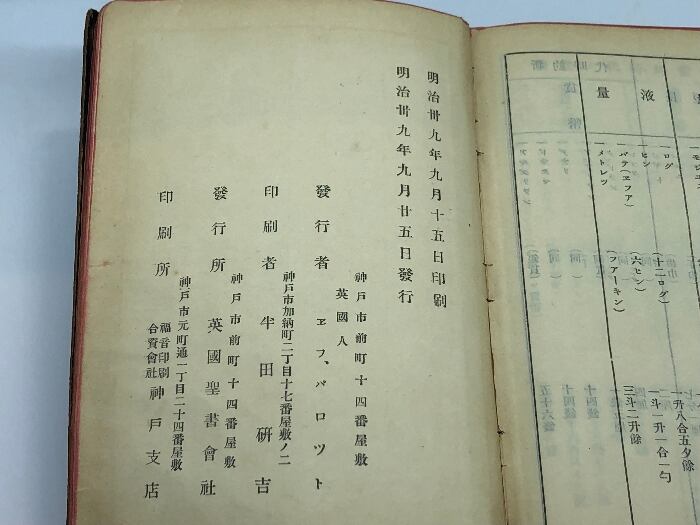 明治卅九年九月十五日印刷
明治卅九年九月廿五日發行
神戸市前町十四番屋敷
英國人
發行者 ヱフ、パロツト
神戸市加納町二丁目十七番屋敷ノ二
印刷者 半田研吉
神戸市前町十四番屋敷
發行所 英國聖書會社
神戸市元町通一丁目二十四番屋敷
印刷所 福音印刷合資會社 神戸支店
液
量
ログ
ヒン (十二ログ) 一斗一升一合一勺
バテ(ヱフア) (六ヒン)
メトレツ (フアーキン) 三斗二升餘
一升八合五夕餘